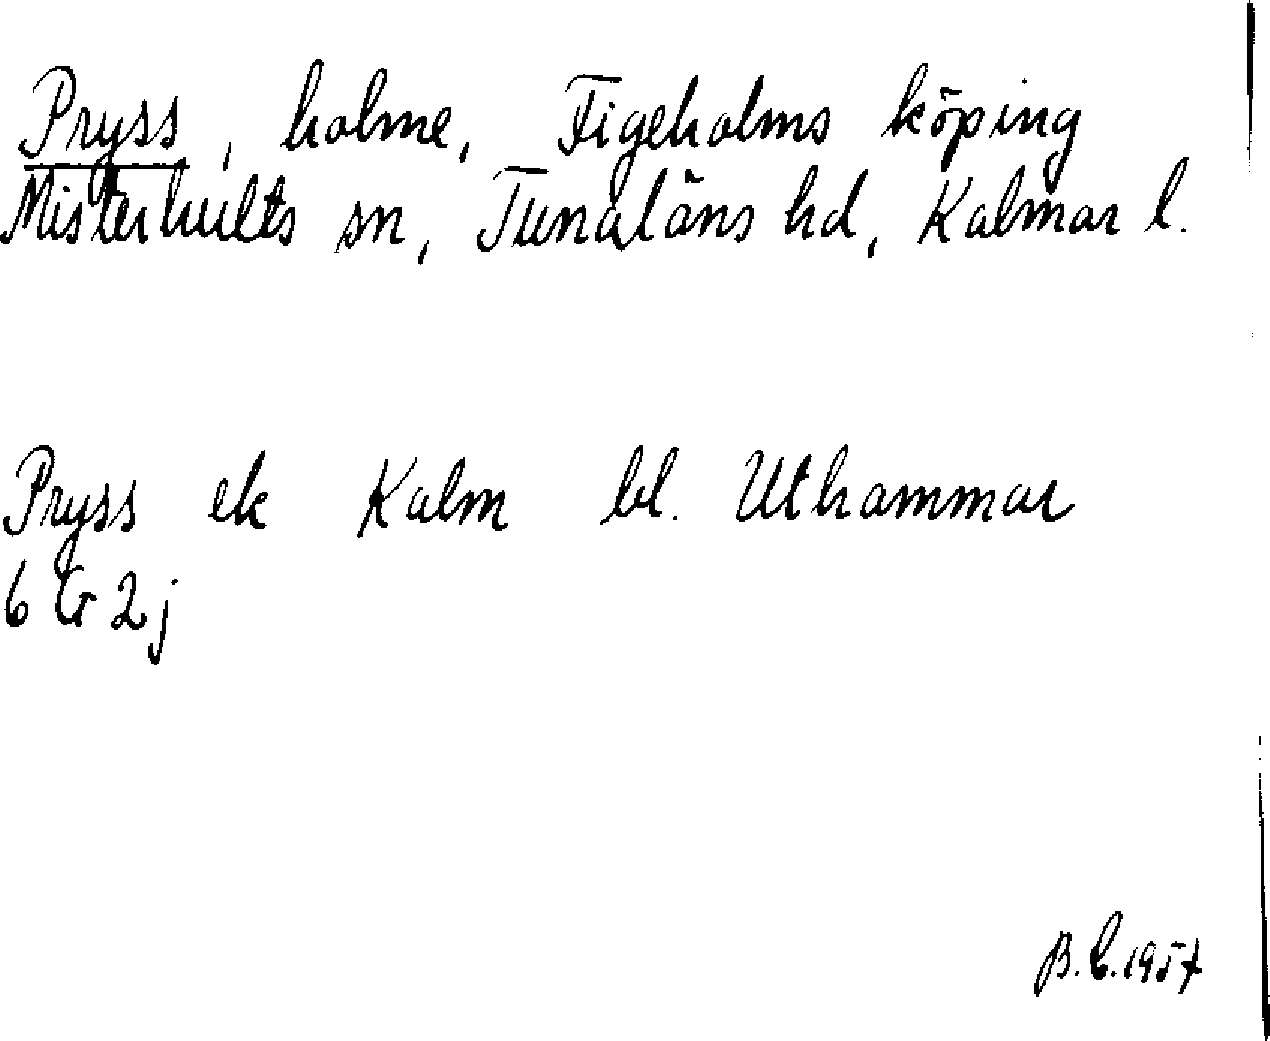 Pryss, holme, Figeholms köping
Misterhults sn, Tunaläns hd, Kalmar l.
Pryss ek Kalm bl. Uthammar
6 G 2 j
B.C. 1957